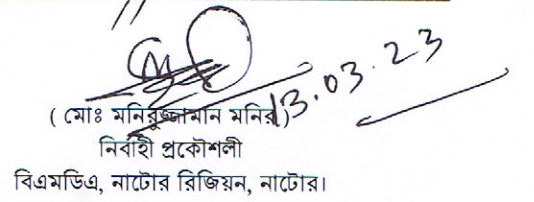 13.03.23
( মোঃ মনিরুজ্জামান মনির )
নির্বাহী প্রকৌশলী
বিএমডিএ, নাটোর রিজিয়ন, নাটোর।